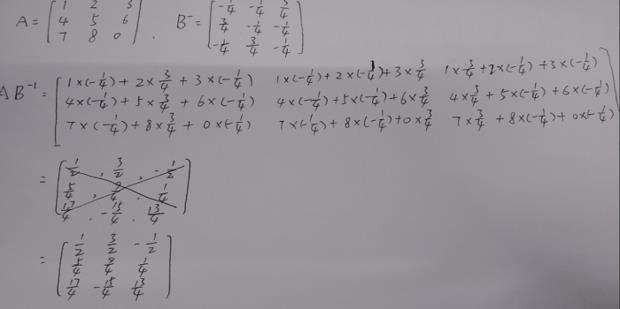 A = [1 2 3; 4 5 6; 7 8 0] . B⁻ = [-1/4 -1/4 3/4; 3/4 -1/4 -1/4; -1/4 3/4 -1/4]
AB⁻¹ = [1×(-1/4) + 2×3/4 + 3×(-1/4) 1×(-1/4) + 2×(-1/4) + 3×3/4 1×3/4 + 2×(-1/4) + 3×(-1/4)
4×(-1/4) + 5×3/4 + 6×(-1/4) 4×(-1/4) + 5×(-1/4) + 6×3/4 4×3/4 + 5×(-1/4) + 6×(-1/4)
7×(-1/4) + 8×3/4 + 0×(-1/4) 7×(-1/4) + 8×(-1/4) + 0×3/4 7×3/4 + 8×(-1/4) + 0×(-1/4)]
= [1/2 , 3/2 , -1/2
5/4 , 9/4 , 1/4
17/4 . -15/4 . 13/4]
= [1/2 3/2 -1/2
5/4 9/4 1/4
17/4 -15/4 13/4]